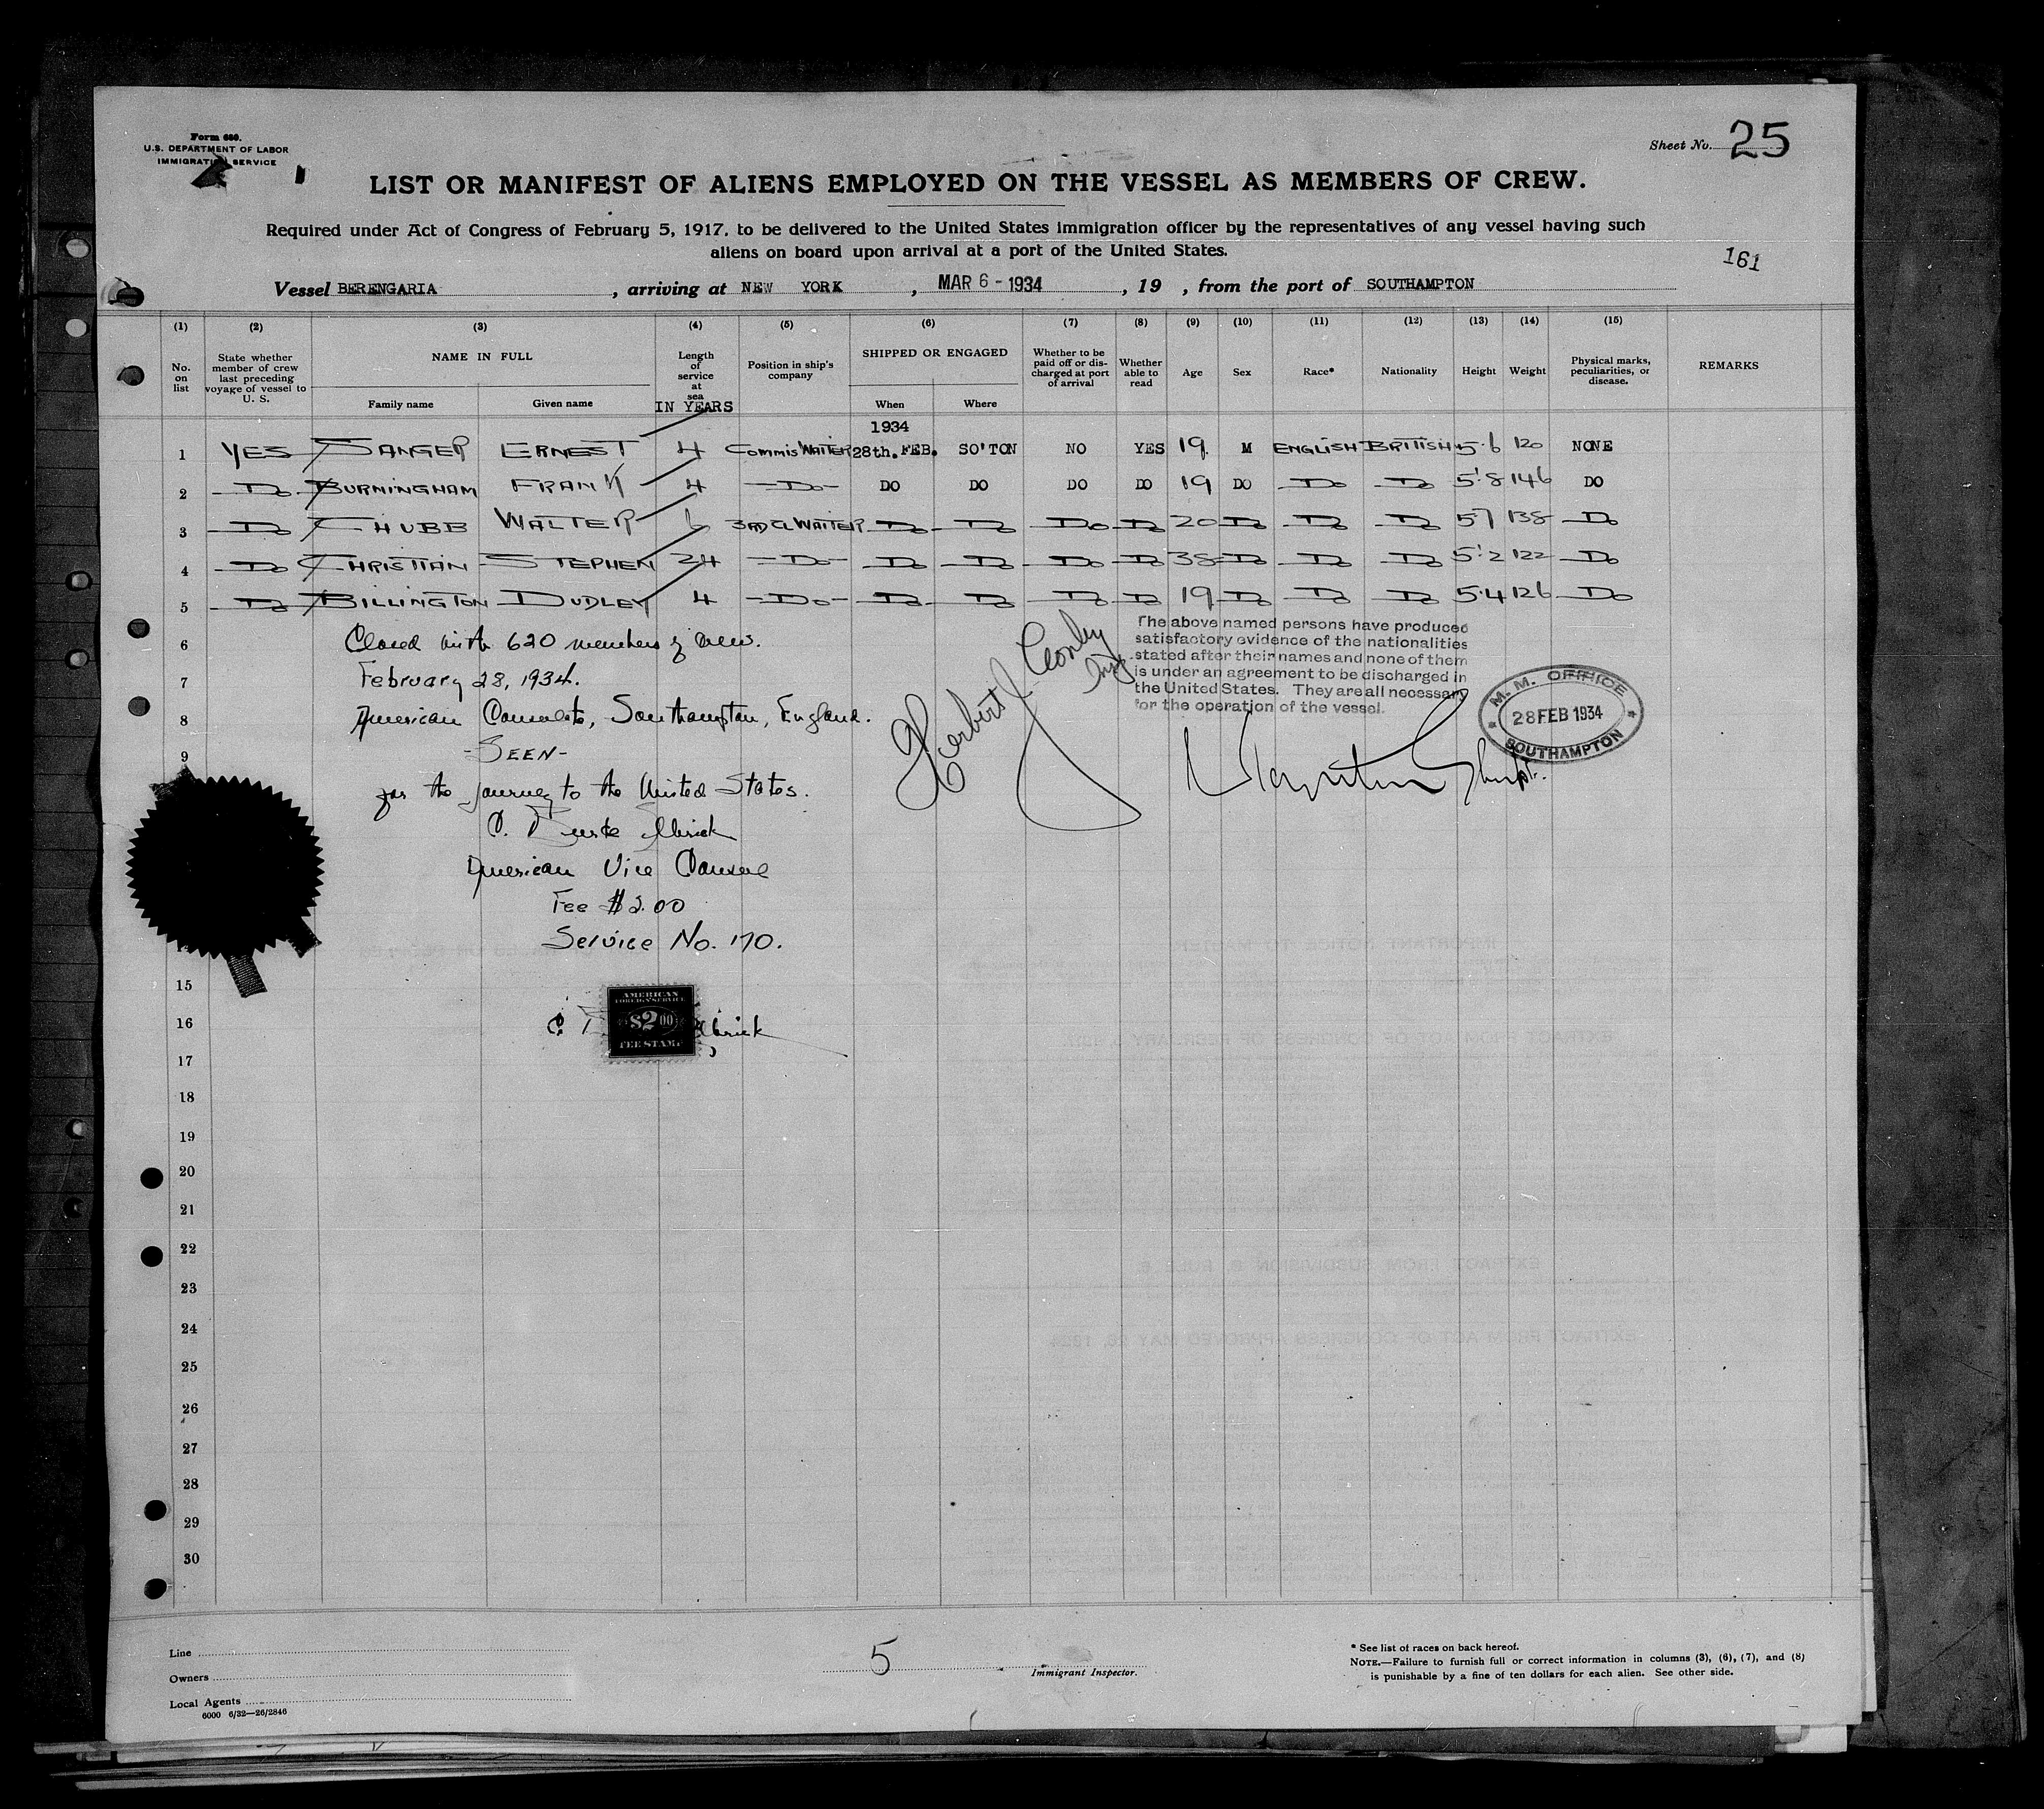 Form 680.
U.S. DEPARTMENT OF LABOR
IMMIGRATION SERVICE
Sheet No. 25
LIST OR MANIFEST OF ALIENS EMPLOYED ON THE VESSEL AS MEMBERS OF CREW.
Required under Act of Congress of February 5, 1917, to be delivered to the United States immigration officer by the representatives of any vessel having such
aliens on board upon arrival at a port of the United States.
161
Vessel BERENGARIA, arriving at NEW YORK, MAR 6 - 1934, 19 , from the port of SOUTHAMPTON
(1) (2) (3) (4) (5) (6) (7) (8) (9) (10) (11) (12) (13) (14) (15)
No. on list State whether member of crew last preceding voyage of vessel to U. S. NAME IN FULL Family name Given name Length of service at sea IN YEARS Position in ship's company SHIPPED OR ENGAGED When Where Whether to be paid off or discharged at port of arrival Whether able to read Age Sex Race* Nationality Height Weight Physical marks, peculiarities, or disease. REMARKS
1934
1 YES SANGER ERNEST 4 Commis WAITER 28th. FEB. SO'TON NO YES 19 M ENGLISH BRITISH 5·6 120 NONE
2 Do BURNINGHAM FRANK 4 Do DO DO DO DO 19 DO Do Do 5'8 146 DO
3 Do CHUBB WALTER 6 3RD CL WAITER Do Do Do Do 20 Do Do Do 5'7 138 Do
4 Do CHRISTIAN STEPHEN 24 Do Do Do Do Do 38 Do Do Do 5'2 122 Do
5 Do BILLINGTON DUDLEY 4 Do Do Do Do Do 19 Do Do Do 5·4 126 Do
6 Closed with 620 members of crew.
7 February 28, 1934.
8 American Consulate, Southampton, England.
9 -SEEN-
for the journey to the United States.
C. Burke Elbrick
American Vice Consul
Fee $2.00
Service No. 170.
The above named persons have produced
satisfactory evidence of the nationalities
stated after their names and none of them
is under an agreement to be discharged in
the United States. They are all necessary
for the operation of the vessel.
Herbert J
M. M. OFFICE
28 FEB 1934
SOUTHAMPTON
15
AMERICAN
FOREIGN SERVICE
$2 00
FEE STAMP
16 C. brick
17
18
19
20
21
22
23
24
25
26
27
28
29
30
Line
Owners
Local Agents
6000 6/32—26/2846
5
Immigrant Inspector.
* See list of races on back hereof.
NOTE.—Failure to furnish full or correct information in columns (3), (6), (7), and (8)
is punishable by a fine of ten dollars for each alien. See other side.